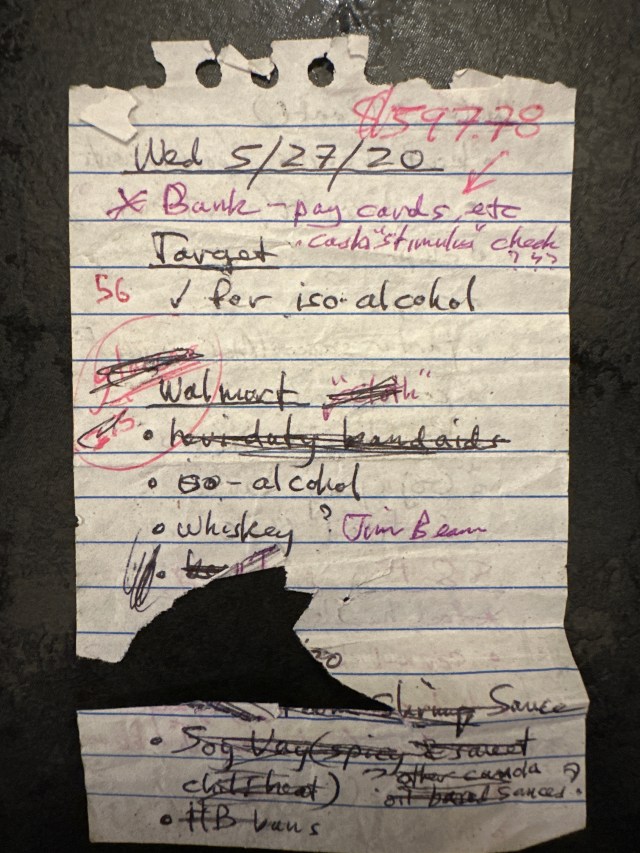 $1597.78
Wed 5/27/20
X Bank - pay cards, etc
Target · cash "stimulus" check
???
56 ✓ for iso-alcohol
Walmart "cloth"
15
• hevi-duty bandaids
• iso-alcohol
• whiskey ? Jim Beam
•
20
Shrimp Sauce
• Soy Vay (spicy & sweet
other
oil based sauces?
• HB buns